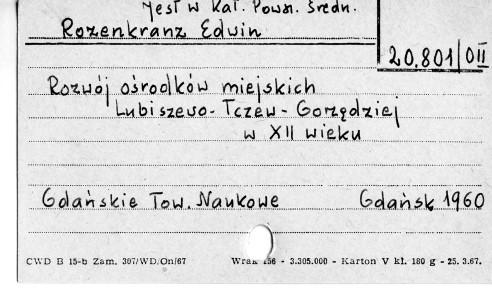 Jest w Kat. Powsz. Średn.
Rozenkranz Edwin
20.801/OII
Rozwój ośrodków miejskich
Lubiszewo-Tczew-Gorzędziej
w XII wieku
Gdańskie Tow. Naukowe Gdańsk 1960
CWD B 15-b Zam. 307/WD/On/67 Wrak 156 - 3.305.000 - Karton V kl. 180 g - 25.3.67.